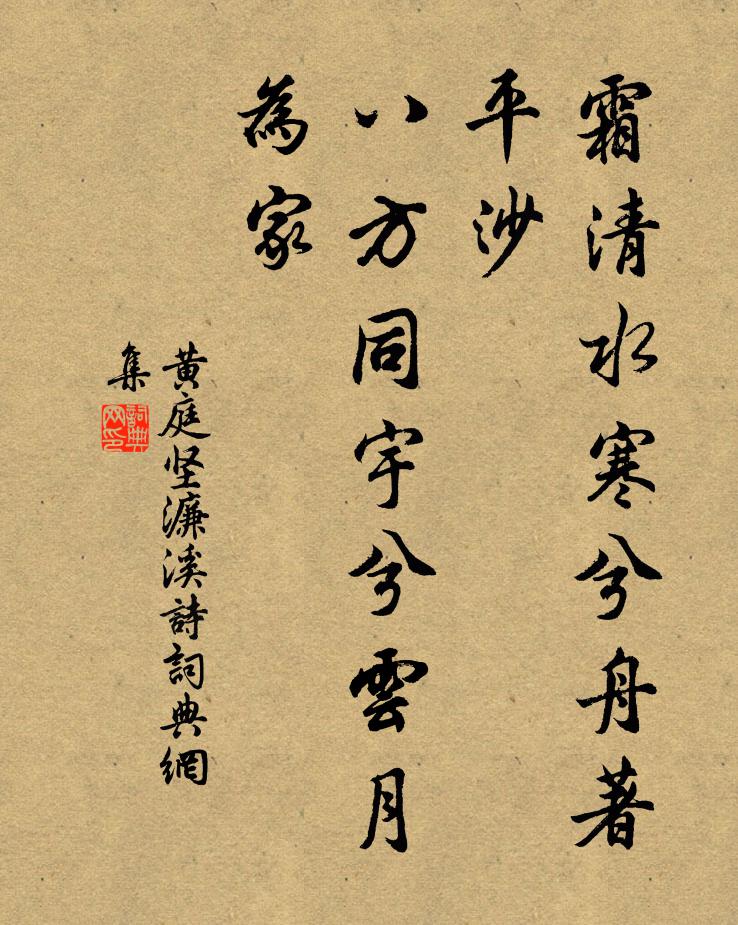 霜清水寒兮舟著
平沙
八方同宇兮雲月
為家
黄庭坚濂溪詩詞典網
集
詞典网印